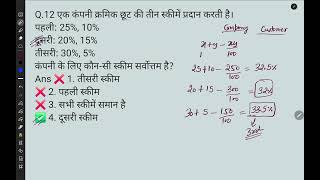 Q.12 एक कंपनी क्रमिक छूट की तीन स्कीमें प्रदान करती है।
पहली: 25%, 10%
दूसरी: 20%, 15%
तीसरी: 30%, 5%
कंपनी के लिए कौन-सी स्कीम सर्वोत्तम है?
Ans 1. तीसरी स्कीम
2. पहली स्कीम
3. सभी स्कीमें समान है
4. दूसरी स्कीम
Company Customer
x+y - xy/100
25+10 - 250/100 = 32.5%
20+15 - 300/100 = 32%
30+5 - 150/100 = 33.5%